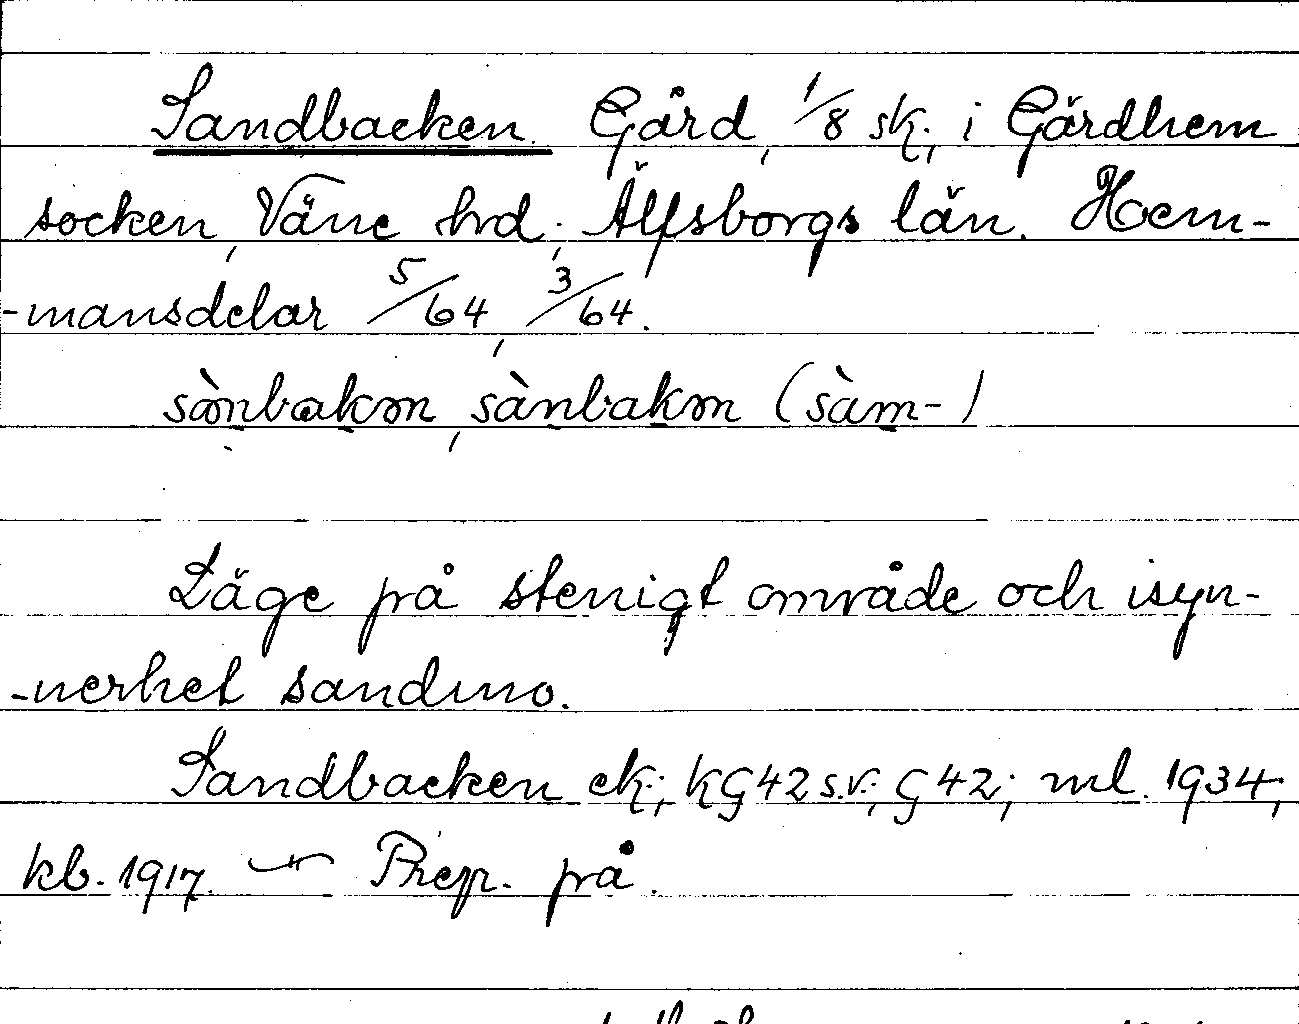 Sandbacken. Gård, 1/8 sk., i Gärdhem
socken, Väne hrd, Älfsborgs län. Hem-
-mansdelar 5/64, 3/64.
sànbakən, sànbakən (sàm-)
Läge på stenigt område och isyn-
-nerhet sandmo.
Sandbacken ek.; KG42 s.v.; G42; ml. 1934;
kb. 1917. — Prep. på.